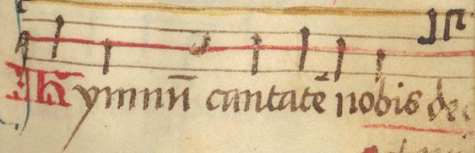 Hymnū cantatē nobis de